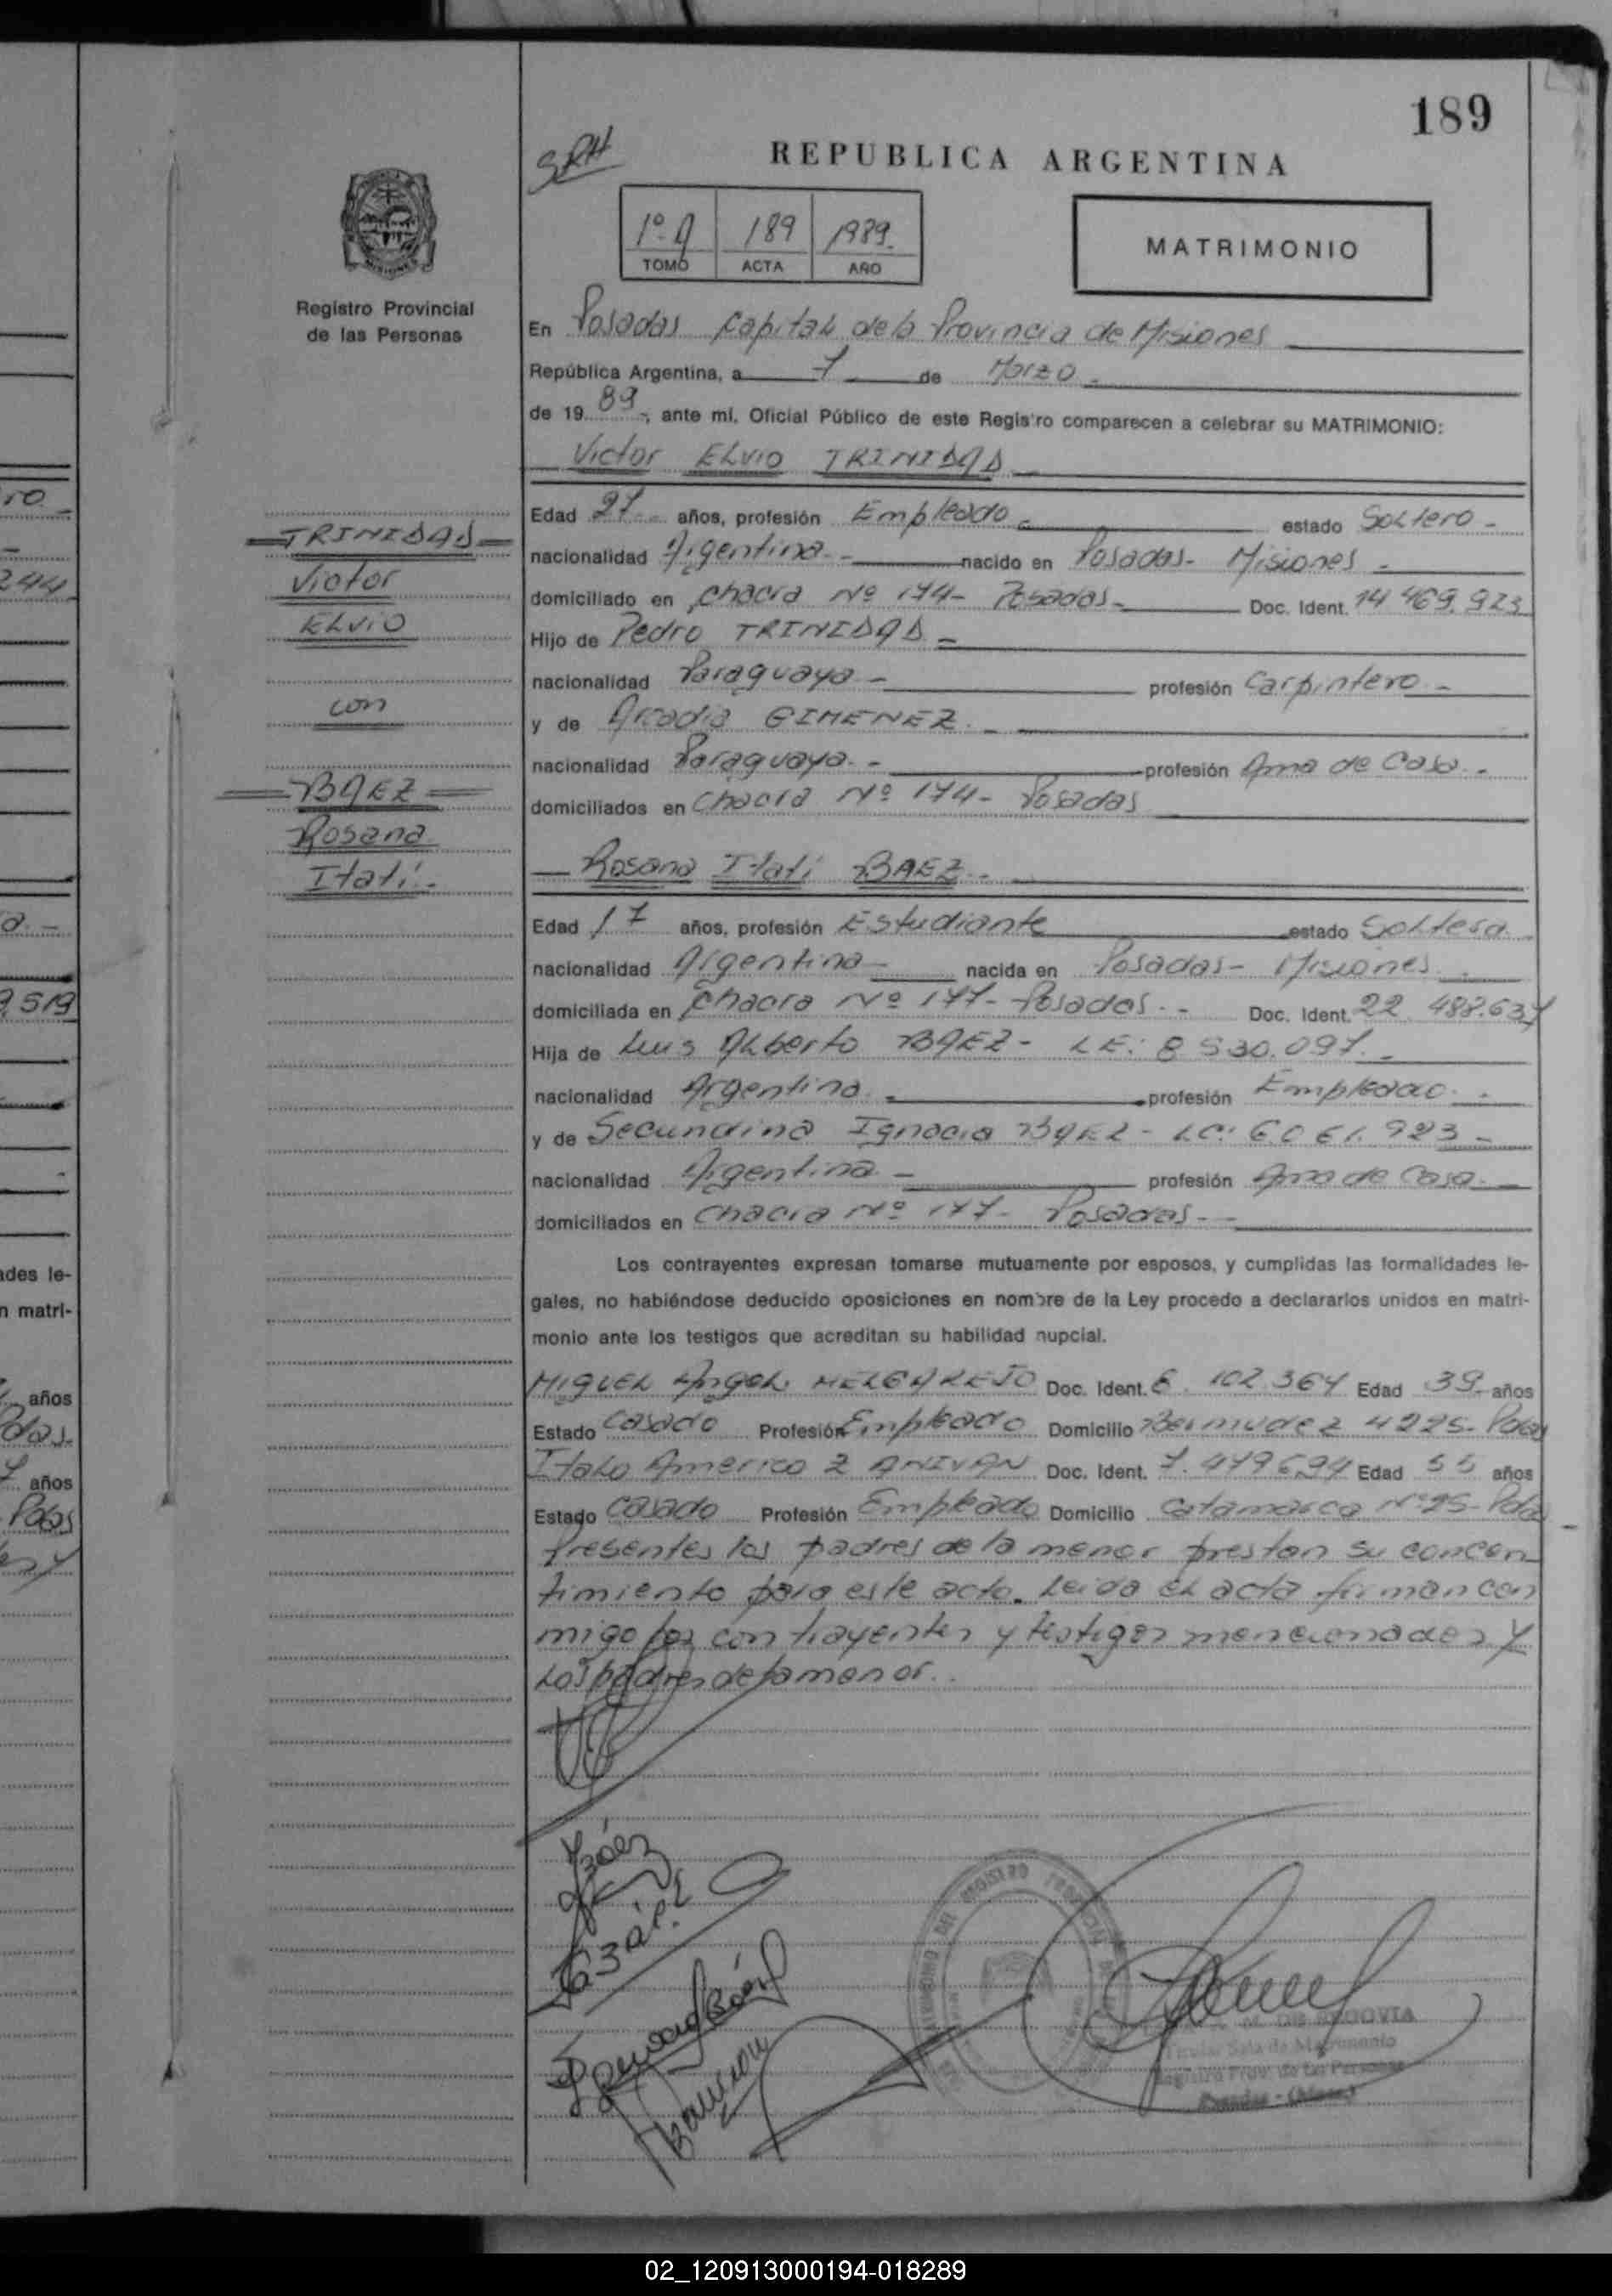 189
SRH
REPUBLICA ARGENTINA
1º A 189 1989.
TOMO ACTA AÑO
MATRIMONIO
Registro Provincial
de las Personas
En Posadas Capital de la Provincia de Misiones
República Argentina, a 7 de Marzo.
de 19 89, ante mí, Oficial Público de este Registro comparecen a celebrar su MATRIMONIO:
Victor ELVIO TRINIDAD
Edad 27 años, profesión Empleado estado Soltero-
nacionalidad Argentina nacido en Posadas- Misiones
domiciliado en Chacra Nº 174- Posadas- Doc. Ident. 14 469.923
Hijo de Pedro TRINIDAD
nacionalidad Paraguaya profesión Carpintero-
y de Arcadia GIMENEZ
nacionalidad Paraguaya profesión Ama de Casa-
domiciliados en Chacra Nº 174- Posadas
Rosana Itatí BAEZ-
Edad 17 años, profesión Estudiante estado Soltera
nacionalidad Argentina nacida en Posadas- Misiones
domiciliada en Chacra Nº 177- Posadas- Doc. Ident. 22 488.637
Hija de Luis Alberto BAEZ- LE: 8 530.097.-
nacionalidad Argentina profesión Empleado
y de Secundina Ignacia BAEZ- LC: 6 061.923-
nacionalidad Argentina profesión Ama de Casa-
domiciliados en Chacra Nº 177- Posadas-
Los contrayentes expresan tomarse mutuamente por esposos, y cumplidas las formalidades le-
gales, no habiéndose deducido oposiciones en nombre de la Ley procedo a declararlos unidos en matri-
monio ante los testigos que acreditan su habilidad nupcial.
MIGUEL Angel MELGAREJO Doc. Ident. 6. 102.364 Edad 39 años
Estado Casado Profesión Empleado Domicilio Bermudez 4225- Pdas
Italo Americo ZANIVAN Doc. Ident. 7.479694 Edad 55 años
Estado Casado Profesión Empleado Domicilio Catamarca Nº 25- Pdas
Presentes los padres de la menor prestan su concen
timiento para este acto. Leida el acta firman con
migo los contrayentes y testigos mencionados y
los padres de la menor.
TRINIDAD
Victor
ELVIO
con
BAEZ
Rosana
Itatí-
Báez
SEGOVIA
Titular Sala de Matrimonio
Registro Prov. de las Personas
Posadas - (Mnes.)
ro
244
9.519
ades le-
n matri-
años
Pdas
años
Pdas
02_120913000194-018289